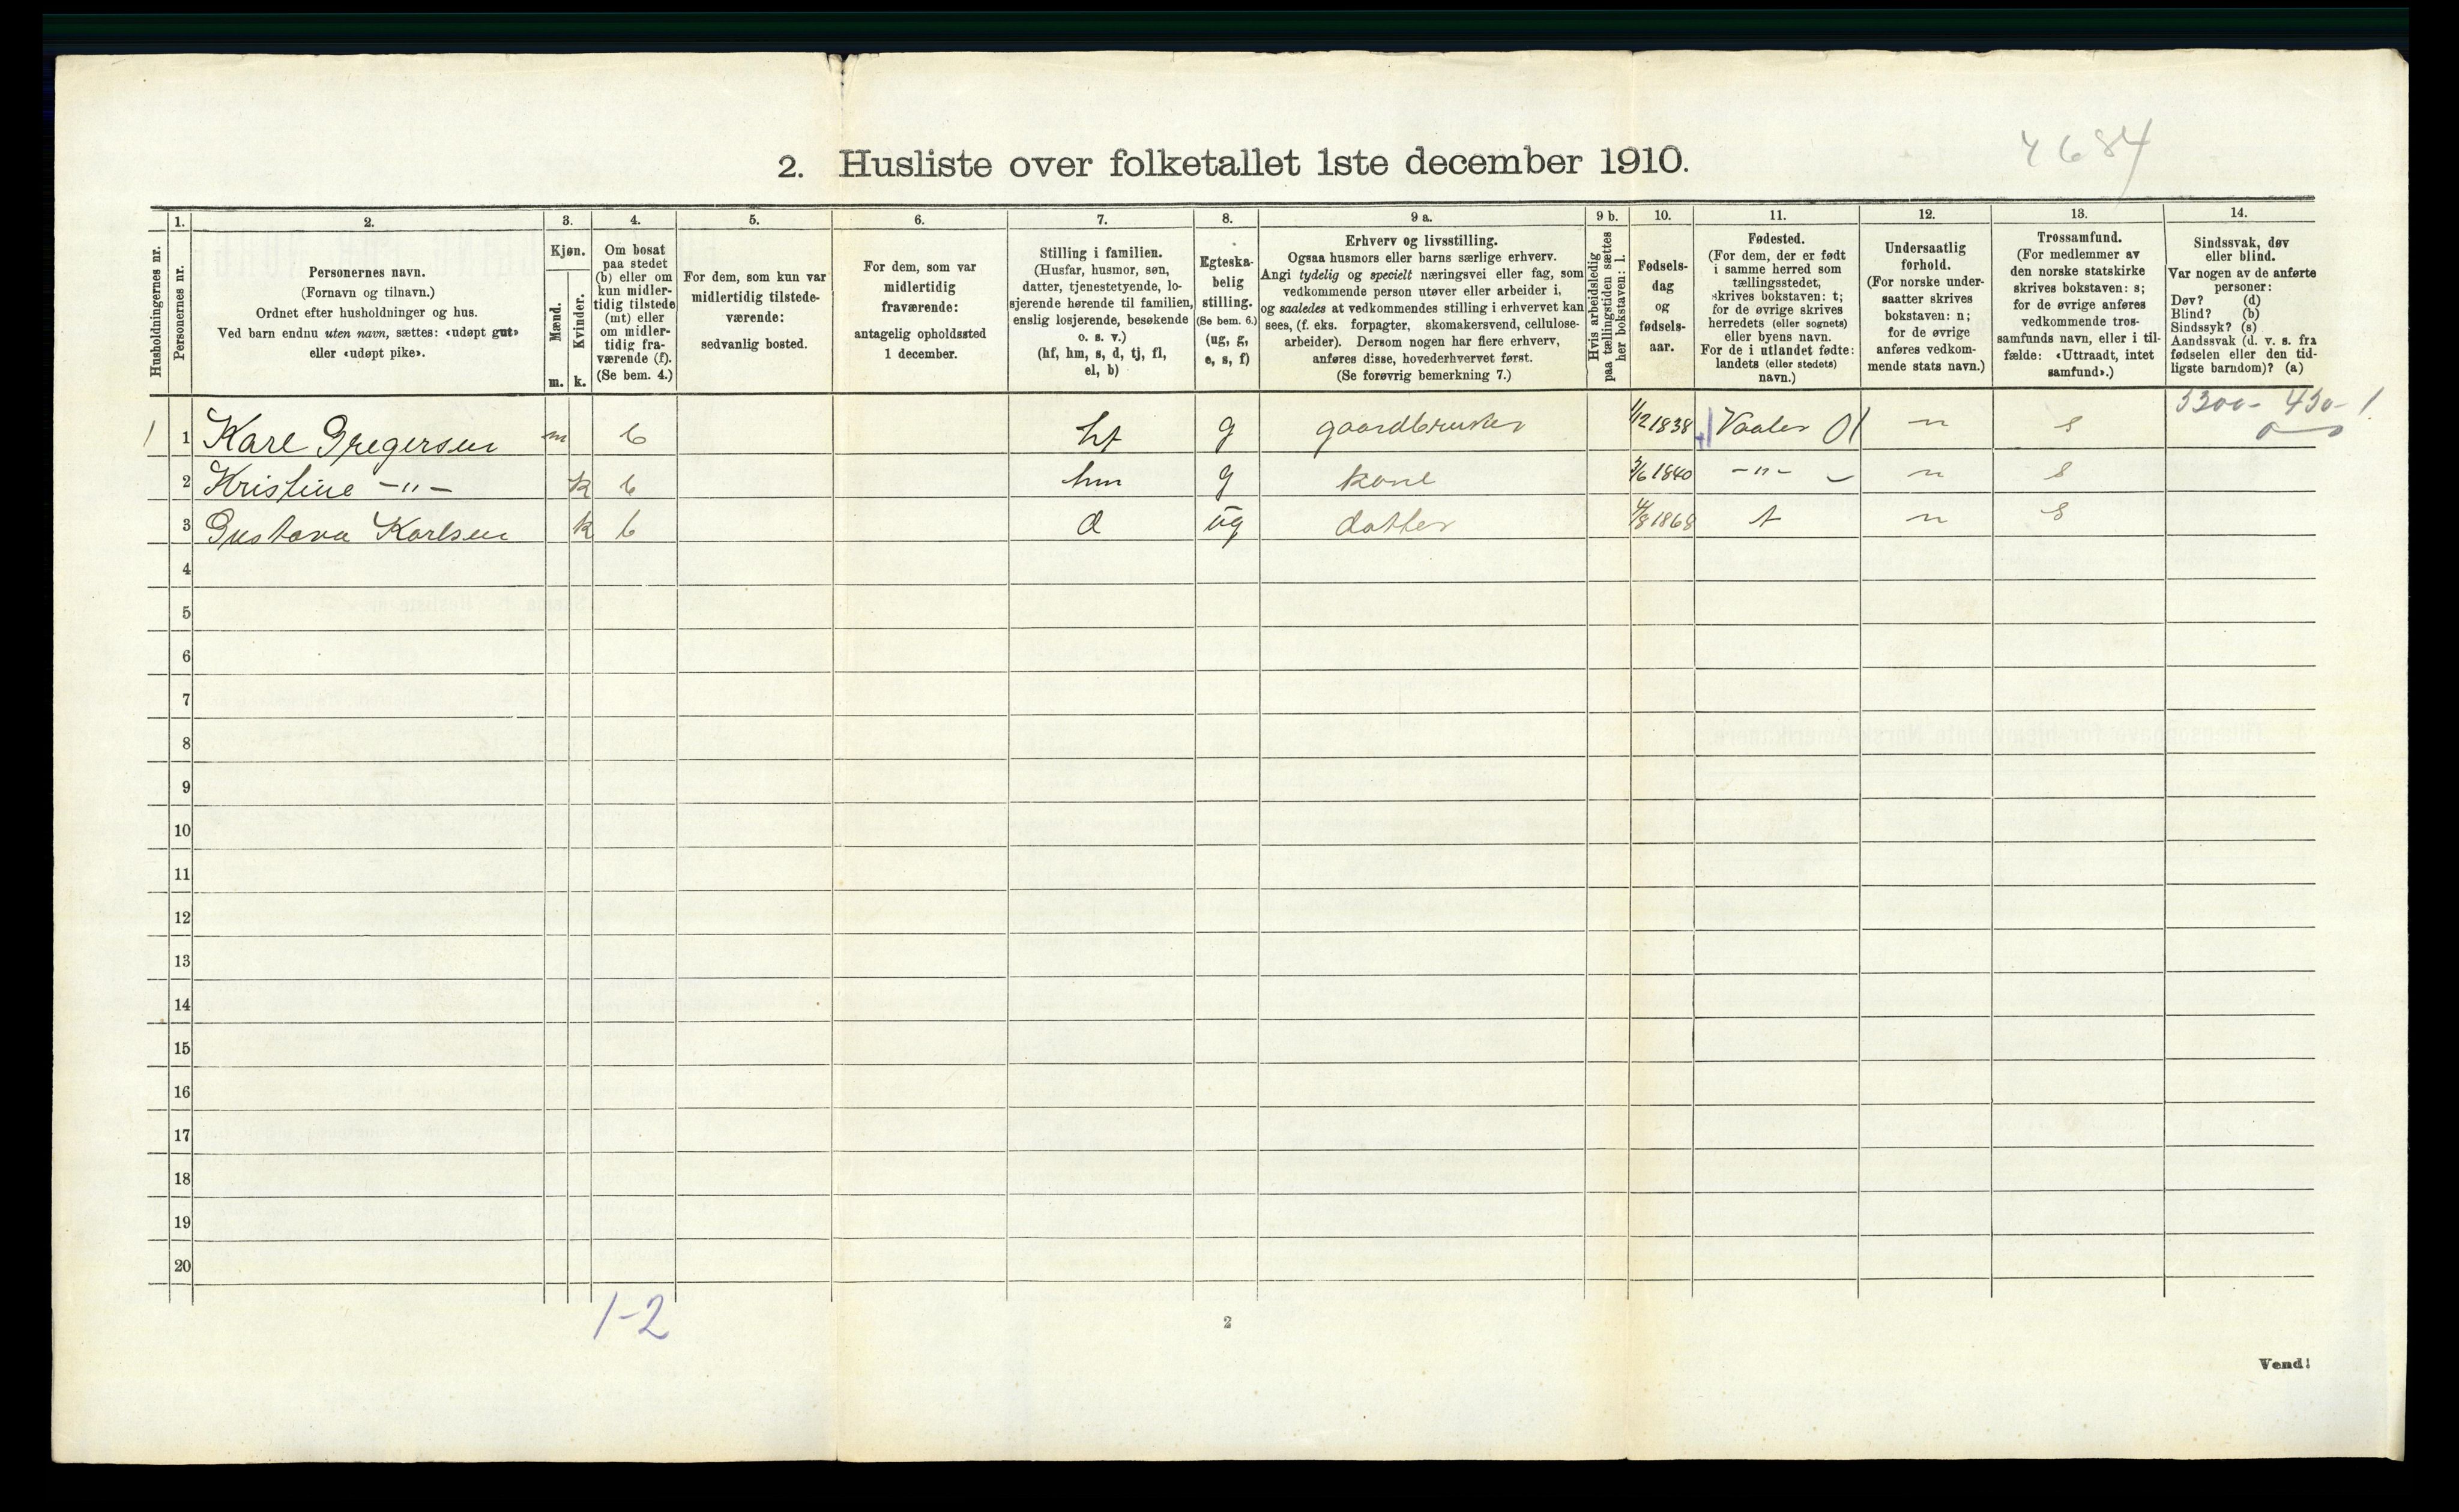 4684
2. Husliste over folketallet 1ste december 1910.
Husholdningernes nr.
1.
Personernes nr.
2.
Personernes navn.
(Fornavn og tilnavn.)
Ordnet efter husholdninger og hus.
Ved barn endnu uten navn, sættes: «udøpt gut»
eller «udøpt pike».
3.
Kjøn.
Mænd.
m.
Kvinder.
k.
4.
Om bosat
paa stedet
(b) eller om
kun midler-
tidig tilstede
(mt) eller
om midler-
tidig fra-
værende (f).
(Se bem. 4.)
5.
For dem, som kun var
midlertidig tilstede-
værende:
sedvanlig bosted.
6.
For dem, som var
midlertidig
fraværende:
antagelig opholdssted
1 december.
7.
Stilling i familien.
(Husfar, husmor, søn,
datter, tjenestetyende, lo-
sjerende hørende til familien,
enslig losjerende, besøkende
o. s. v.)
(hf, hm, s, d, tj, fl,
el, b)
8.
Egteska-
belig
stilling.
(Se bem. 6.)
(ug, g,
e, s, f)
9 a.
Erhverv og livsstilling.
Ogsaa husmors eller barns særlige erhverv.
Angi tydelig og specielt næringsvei eller fag, som
vedkommende person utøver eller arbeider i,
og saaledes at vedkommendes stilling i erhvervet kan
sees, (f. eks. forpagter, skomakersvend, cellulose-
arbeider). Dersom nogen har flere erhverv,
anføres disse, hovederhvervet først.
(Se forøvrig bemerkning 7.)
9 b.
Hvis arbeidsledig
paa tællingstiden sættes
her bokstaven: l.
10.
Fødsels-
dag
og
fødsels-
aar.
11.
Fødested.
(For dem, der er født
i samme herred som
tællingsstedet,
skrives bokstaven: t;
for de øvrige skrives
herredets (eller sognets)
eller byens navn.
For de i utlandet fødte:
landets (eller stedets)
navn.)
12.
Undersaatlig
forhold.
(For norske under-
saatter skrives
bokstaven: n;
for de øvrige
anføres vedkom-
mende stats navn.)
13.
Trossamfund.
(For medlemmer av
den norske statskirke
skrives bokstaven: s;
for de øvrige anføres
vedkommende tros-
samfunds navn, eller i til-
fælde: «Uttraadt, intet
samfund».)
14.
Sindssvak, døv
eller blind.
Var nogen av de anførte
personer:
Døv? (d)
Blind? (b)
Sindssyk? (s)
Aandssvak (d. v. s. fra
fødselen eller den tid-
ligste barndom)? (a)
1 1 Karl Gregersen m b hf g gaardbruker 1/12 1838 Vaaler n s
2 Kristine -"- k b hm g kone 3/6 1840 -"- n s
3 Gustava Karlsen k b d ug datter 4/8 1868 t n s
4
5
6
7
8
9
10
11
12
13
14
15
16
17
18
19
20
1-2
2
Vend!